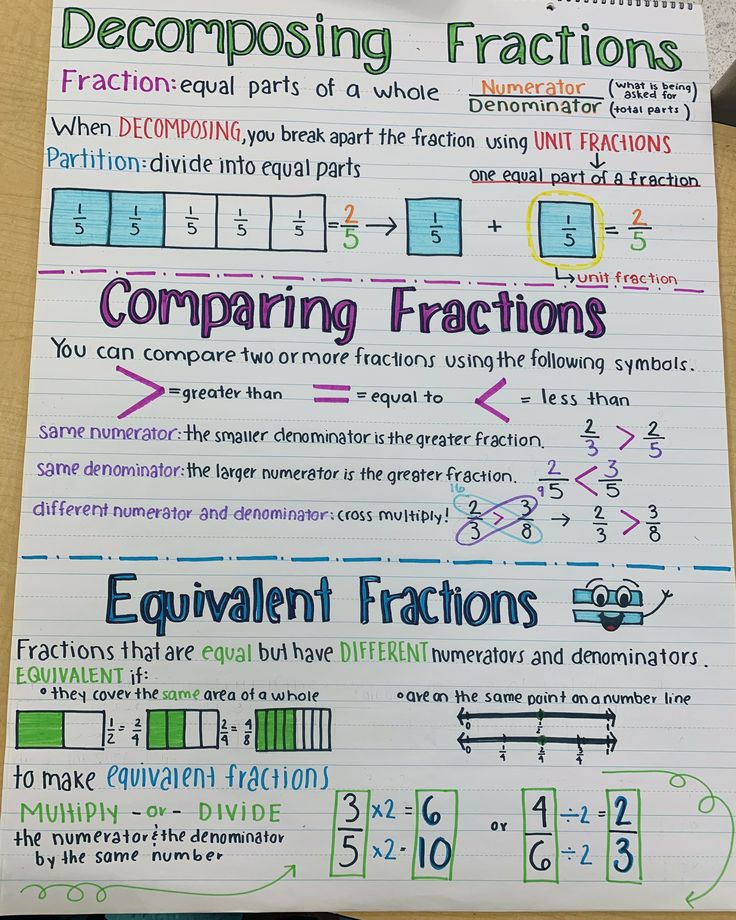 Decomposing Fractions
Fraction: equal parts of a whole
Numerator (what is being asked for)
Denominator (total parts)
When DECOMPOSING, you break apart the fraction using UNIT FRACTIONS
Partition: divide into equal parts
one equal part of a fraction
1/5 1/5 1/5 1/5 1/5 = 2/5 → 1/5 + 1/5 = 2/5
unit fraction
Comparing Fractions
You can compare two or more fractions using the following symbols.
> = greater than = = equal to < = less than
same numerator: the smaller denominator is the greater fraction. 2/3 > 2/5
same denominator: the larger numerator is the greater fraction. 2/5 < 3/5
different numerator and denominator: cross multiply! 16 2/3 > 3/8 9 → 2/3 > 3/8
Equivalent Fractions
Fractions that are equal but have DIFFERENT numerators and denominators.
EQUIVALENT if:
° they cover the same area of a whole
° are on the same point on a number line
1/2 = 2/4 2/4 = 4/8
0 1/2 1
0 1/4 2/4 3/4 1
to make equivalent fractions
MULTIPLY - or - DIVIDE
the numerator & the denominator
by the same number
3 x2 = 6
5 x2 = 10
or
4 ÷2 = 2
6 ÷2 3